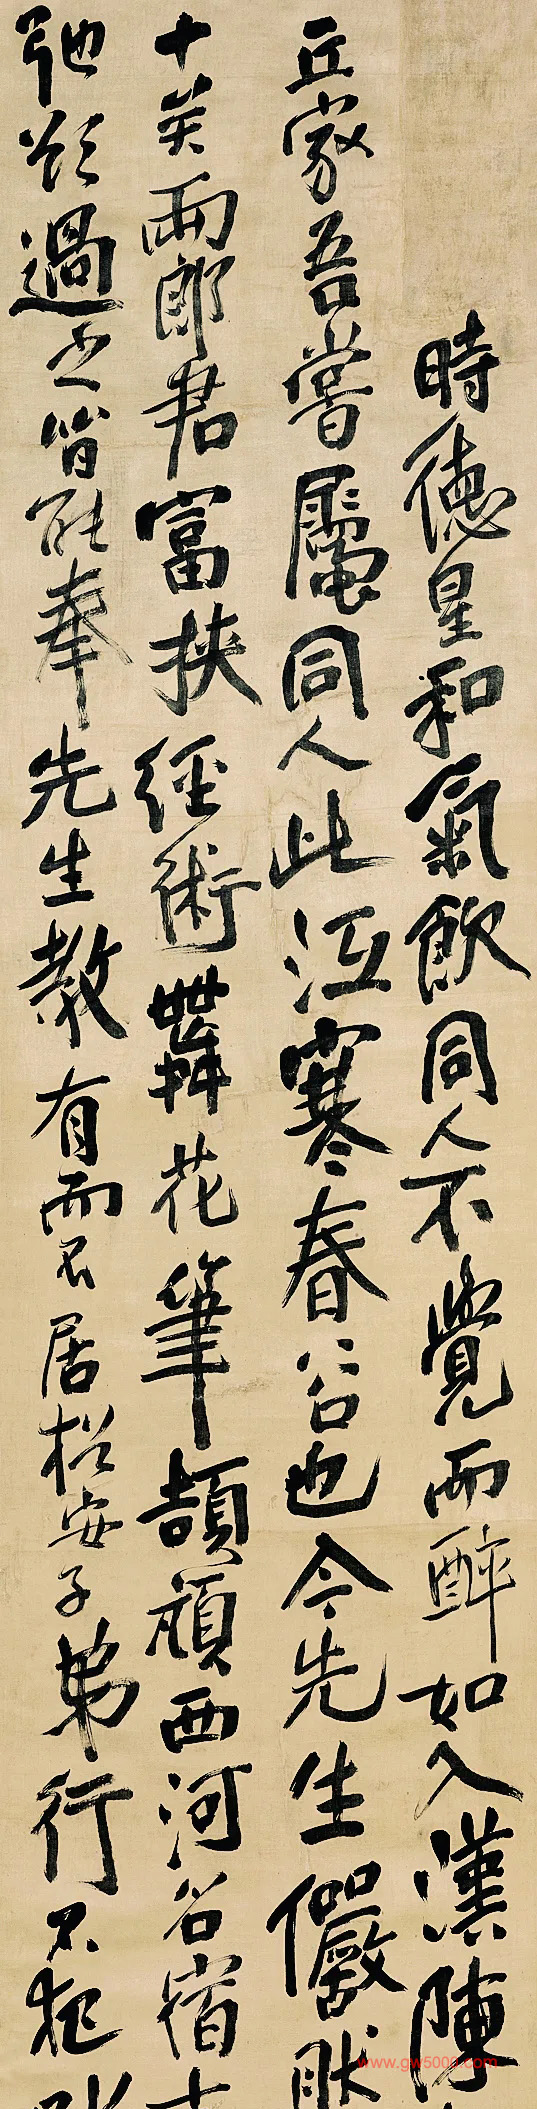 時德星和氣飲同人不覺而醉如入漢陳
丘家吾嘗屬同人此沍寒春谷也今先生儼然
十矣兩郎君富挾經術舞花筆頡頏西河名宿
弛然過之皆能奉先生教有而不居松安子弟行不犯
www.gw5000.com